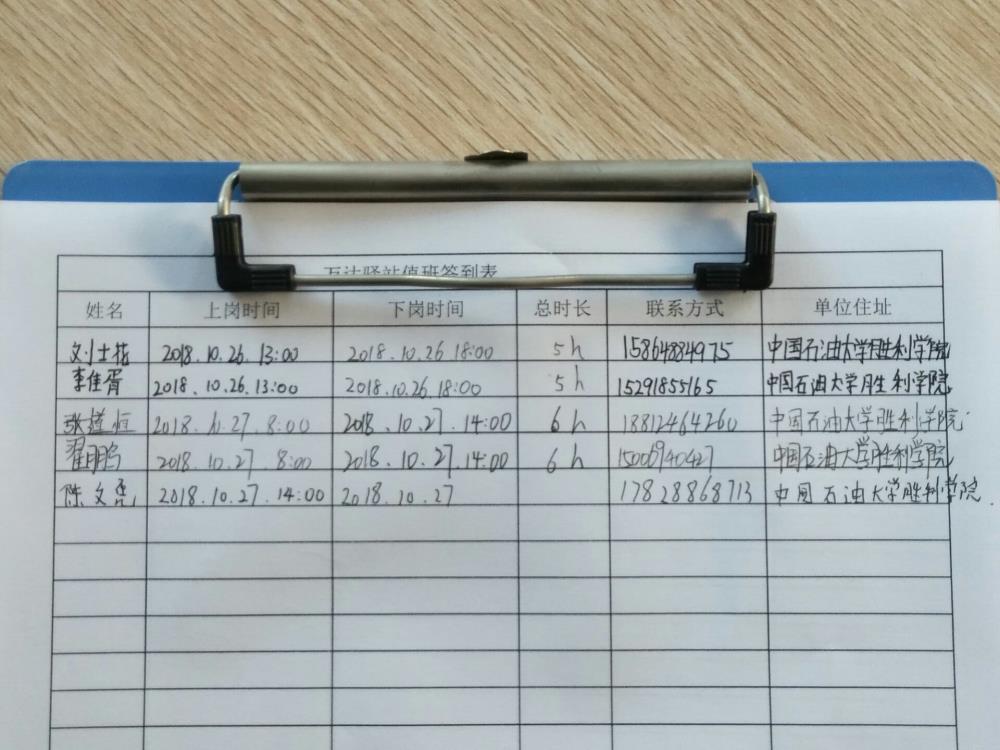 万达驿站值班签到表
姓名 上岗时间 下岗时间 总时长 联系方式 单位住址
刘士花 2018.10.26.13:00 2018.10.26 18:00 5h 15864884975 中国石油大学胜利学院
李佳胥 2018.10.26.13:00 2018.10.26.18:00 5h 15291855165 中国石油大学胜利学院
恒 2018.10.27.8:00 2018.10.27.14:00 6h 18812464260 中国石油大学胜利学院
翟鹏 2018.10.27.8:00 2018.10.27.14:00 6h 中国石油大学胜利学院
陈文亮 2018.10.27.14:00 2018.10.27 17828868713 中国石油大学胜利学院